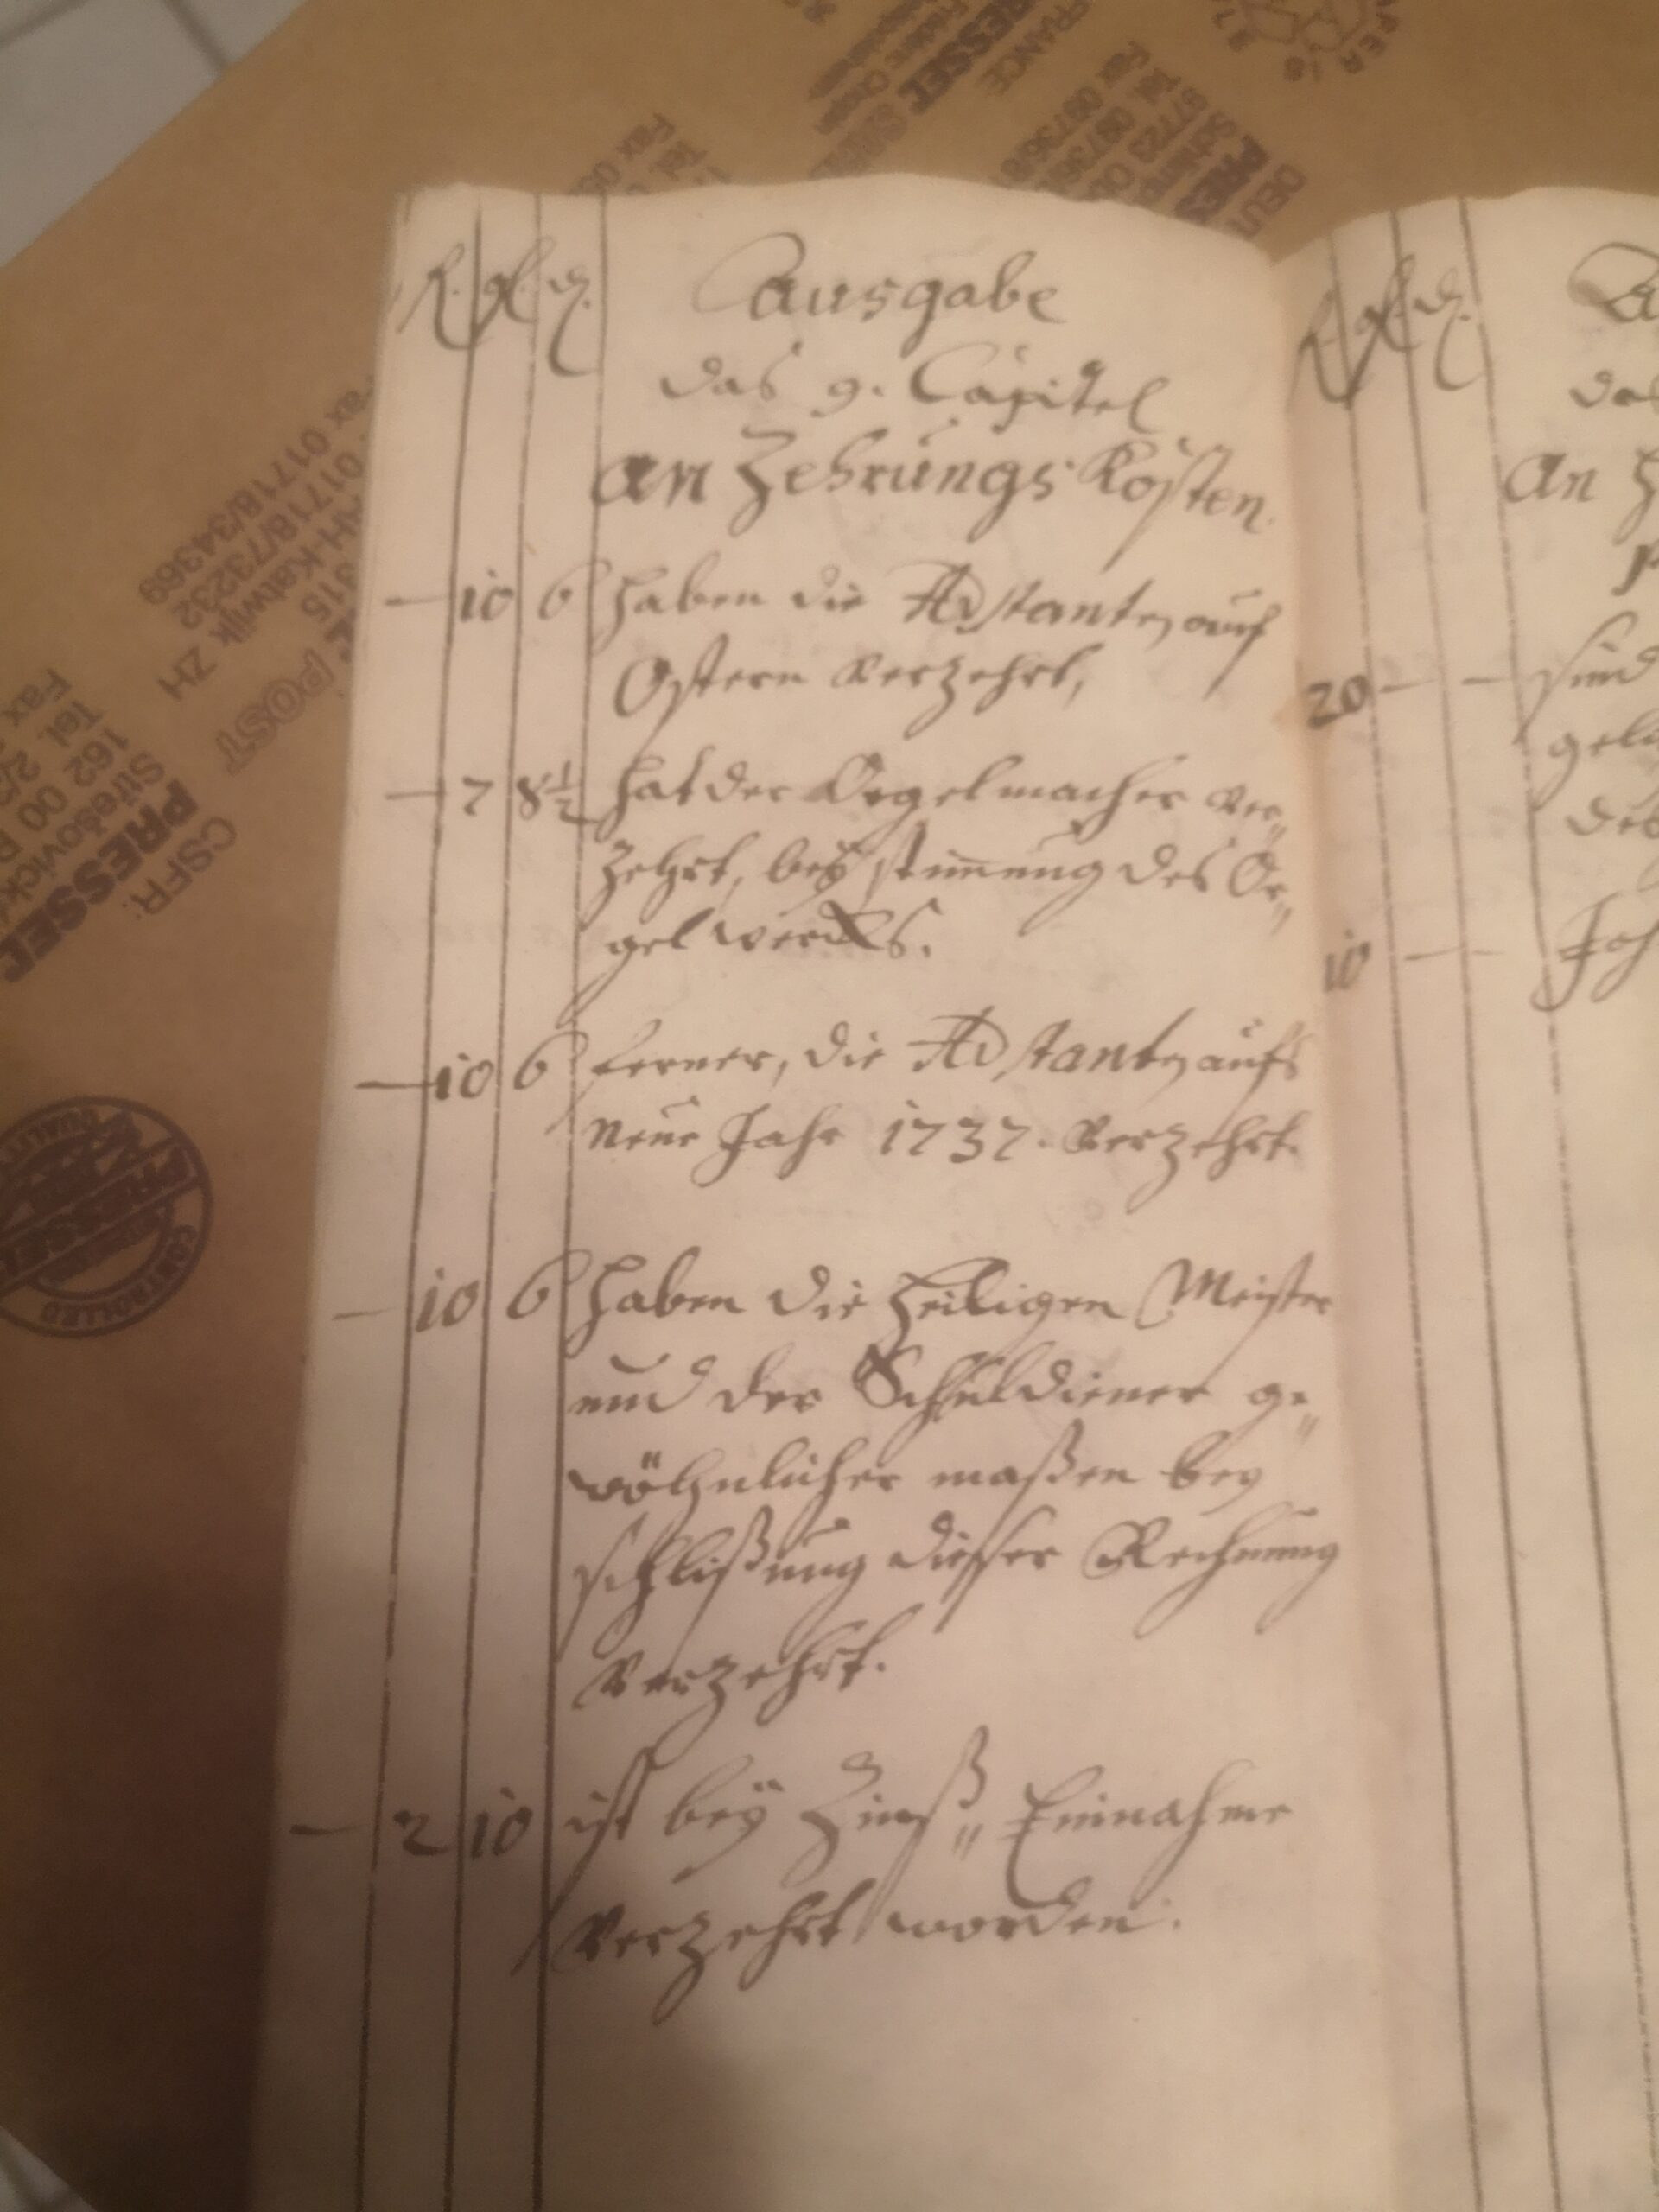 R. gl. d. Ausgabe
das 9. Capitel
an Zehrungs Kosten.
— 10 6 haben die Adstanten auf
Ostern verzehrt,
— 7 8½ hat der Orgelmacher ver„
zehrt, beÿ stimung des Or„
gelwercks.
— 10 6 ferner, die Adstanten aufs
Neue Jahr 1737. verzehrt.
— 10 6 haben die Heiligen Meister
und der Schuldiener ge„
wöhnlicher maßen bey
schlißung dießer Rechnung
verzehrt.
— 2 10 ist beÿ Zinß„ Einnahme
verzehrt worden.
R. gl. d.
an
20 — — sind
10 — —
PRESSEL
FRANCE
CSFR:
PRESSEL
162 00
POST
Katwijk ZH
01718/73232
Fax 01718/34369
CONTROLLED
PRESSEL
QUALITY